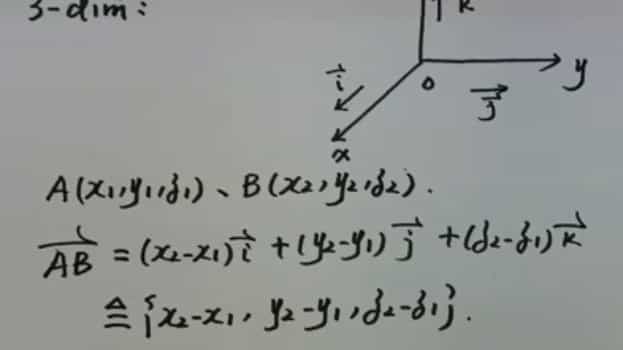 3-dim:
k
i⃗
o
j⃗
y
x
A(x₁,y₁,z₁)、B(x₂,y₂,z₂).
A⃗B⃗ = (x₂-x₁)i⃗ + (y₂-y₁)j⃗ + (z₂-z₁)k⃗
≜ {x₂-x₁, y₂-y₁, z₂-z₁}.